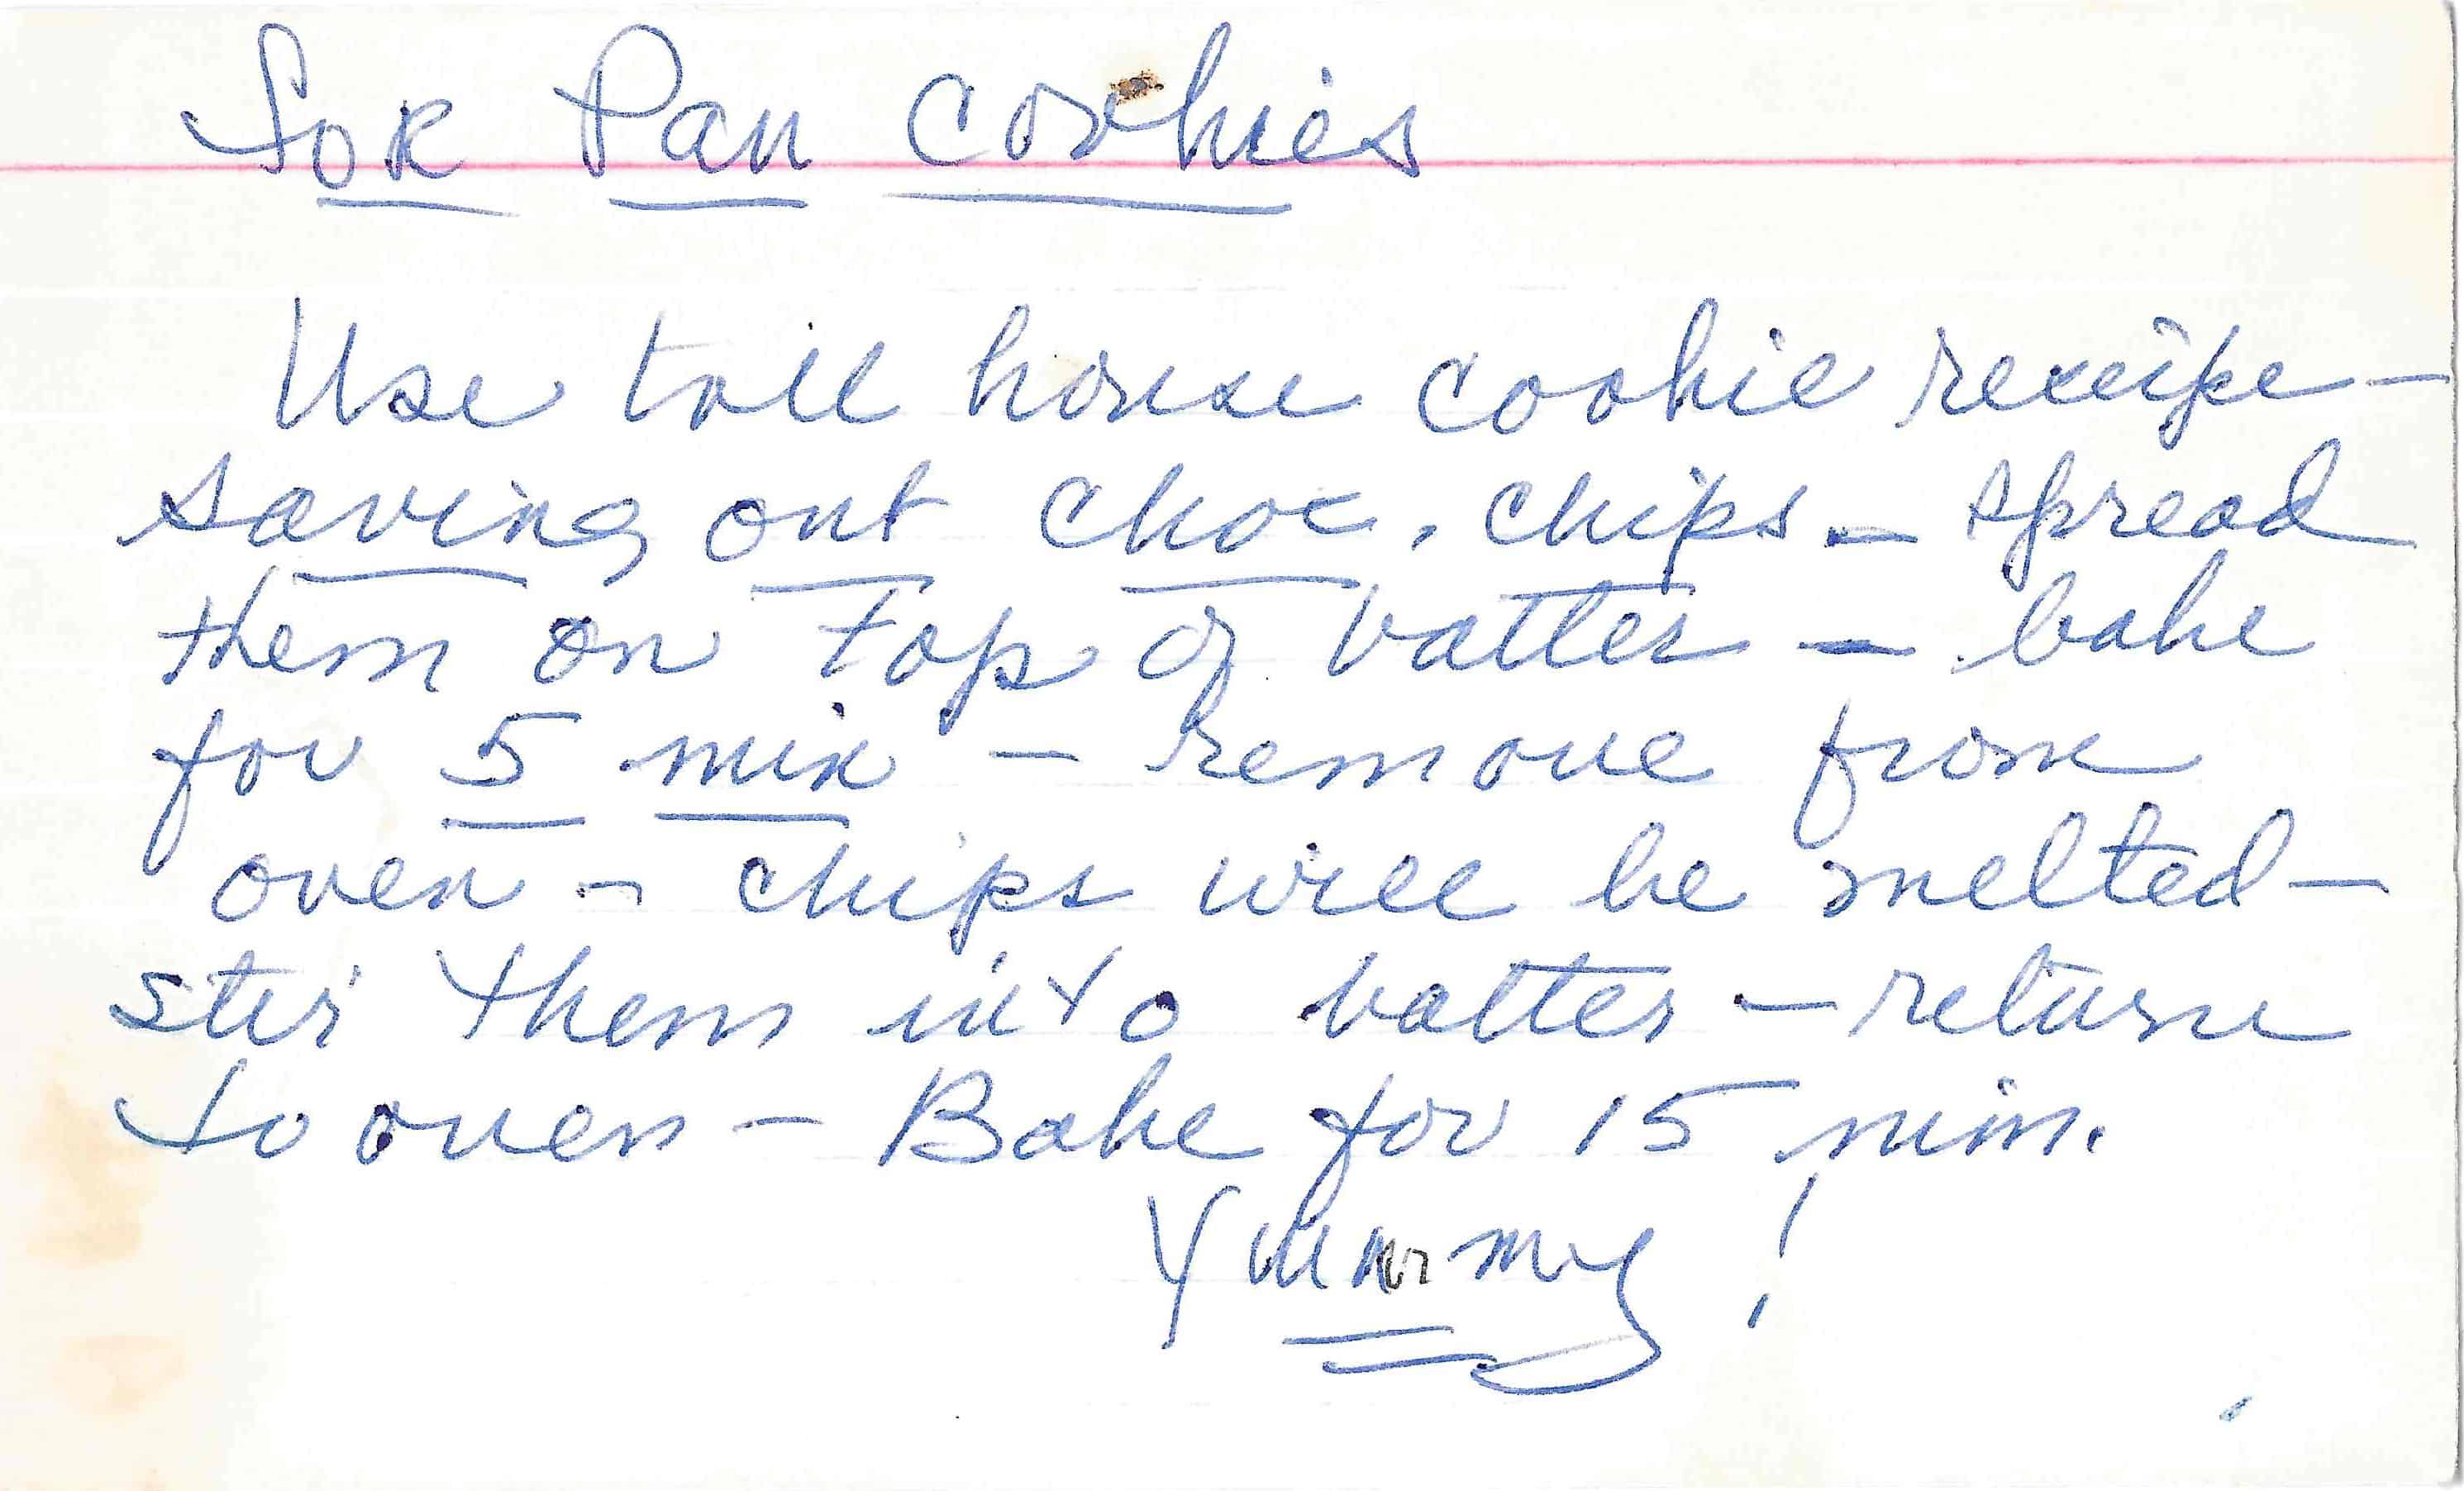 for Pan Cookies
Use toll house cookie receipe –
saving out choc. chips – spread
them on top of batter – bake
for 5 min – remove from
oven – chips will be melted –
stir them into batter – return
to oven – Bake for 15 min.
Yummmy!